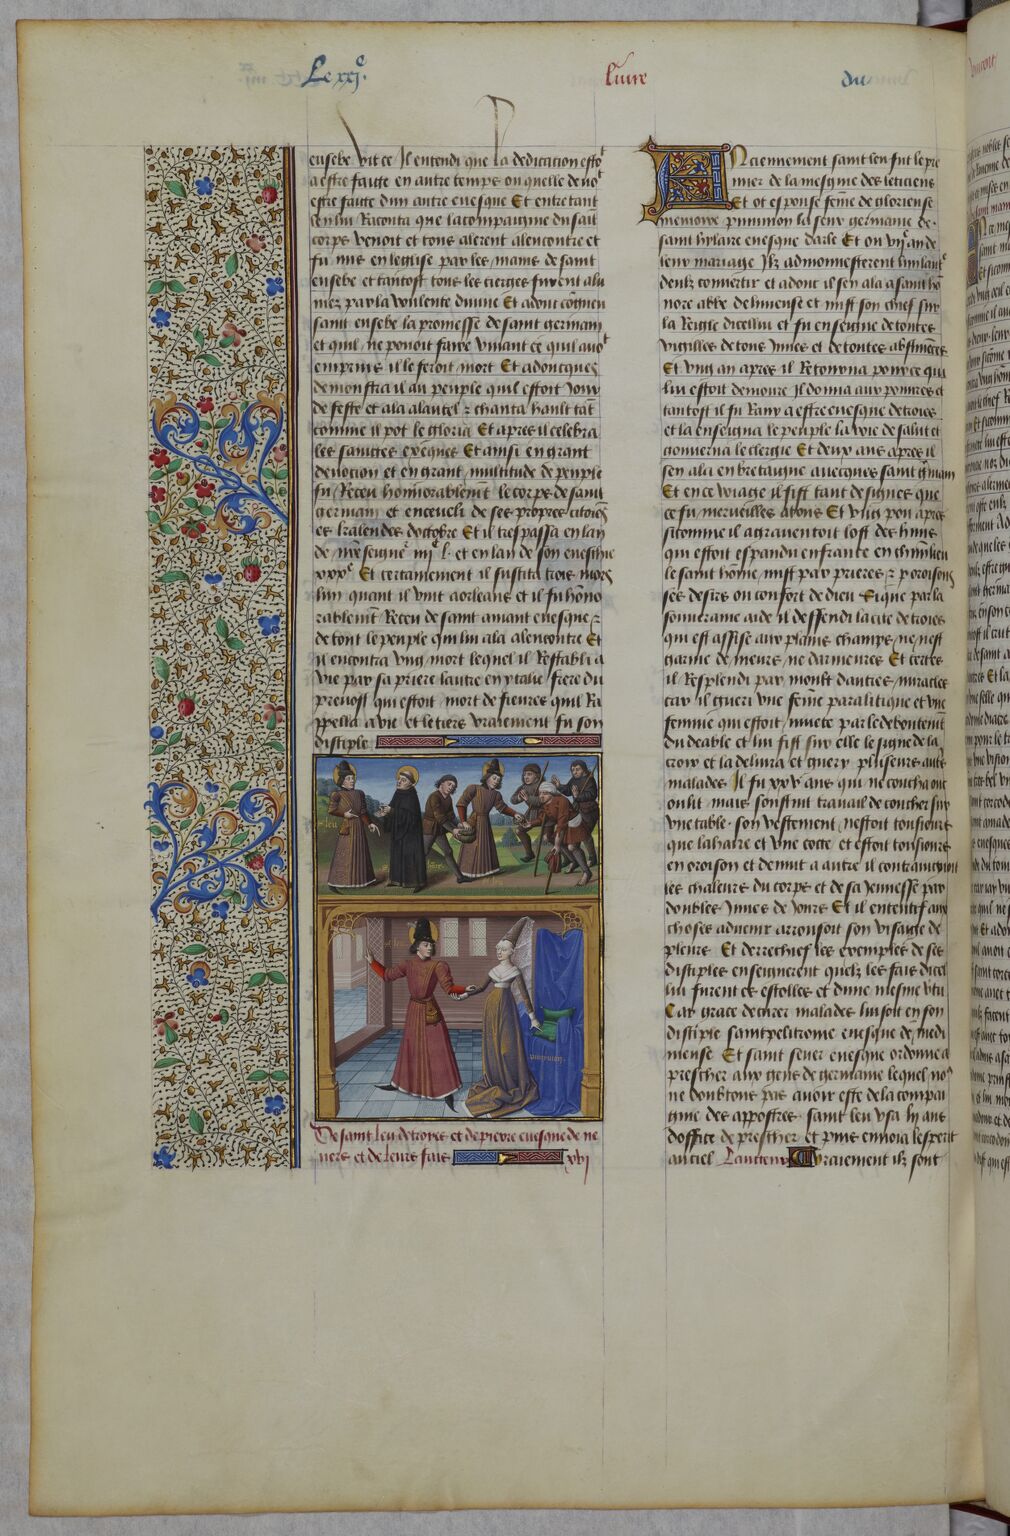 Le xxjᵉ.
liure
du
eusebe vit ce Il entendi que la dedication esto
a estre faicte en autre temps ou quelle deuoᵗ
estre faicte dun autre euesque Et entretant
en lui Raconta que la compaignie du saīt
corps venoit et tous alerent alencontre et
fu mis en leglise par les mains de saint
eusebe et tantost tous les cierges furent alu
mez par la voulente diuine Et adont cogneu
saint eusebe la promesse de saint germain
et quil ne pouoit faire viuant ce quil auoᵗ
empruis il le feroit mort Et adoncques
demonstra il au peuple quil estoit Jour
de feste et ala alautel z chanta hault tāt
comme il pot le gloria Et apres il celebra
les sainctes exeques Et ainsi en grant
deuocion et en grant multitude de peuple
fu Receu honnorablemēt le corps de saint
germain et enceueli de ses propres citoiēs
es kalendes doctobre Et il trespassa en lan
de nr̄e seigneʳ iiijᶜ l. et en lan de son euesche
xxxᵉ Et certainement il suscita trois mors
lun quant il vint a orleans et il fu hōno
rablemēt Receu de saint aniant euesque z
de tout le peuple qui lui ala alencontre Et
il encontra vng mort lequel il Restabli a
vie par sa priere lautre en ytalie frere du
preuost qui estoit mort de fieures quil Ra
ppella a vie et le tiers vraiement fu son
disciple
s leu
s leu
pimenion
De saint leu de troies et de pierre euesque de ne
uers et de leurs fais
xvj
ANciennement saint leu fut le pre
mier de la mesgnie des leticiens
Et ot espouse fēme de glorieuse
memoire punmon la seur germaine de
saint hylaire euesque darle Et ou vijᵉ an de
leur mariage Ilz admonnesterent lun lautʳ
deulz conuertir et adonc il sen ala a saint hō
nore abbe de liniense et mist son chief sur
la Reigle dicellui et fu enseigne de toutes
vigilles de tous Junes et de toutes abstinēces
Et vng an apres il Retourna pour ce qui
lui estoit demoure Il donna aux poures et
tantost il fu Rauy a estre euesque de troies
et la enseigna le peuple la voie de salut et
gouuerna le clergie Et deux ans apres il
sen ala en bretaigne auecques saint gʳmain
Et en ce voiage il fist tant de signes que
ce fu merueilles a tous Et vng pou apres
sicomme il agrauentoit lost des huns
qui estoit espandu en france en chinlieu
le saint hōme mist par prieres z poroisons
ses desirs ou confort de dieu Si que par la
souueraine aide il deffendi la cite de troies
qui est assise aux plains champs ne nest
garnie de meurs ne darmeures Et certes
il Resplendi par moult dautres miracles
car il gueri vne fēme paralitique et vne
femme qui estoit muete par le deboutemt̄
du deable et lui fist sur elle le signe de la
croix et la deliura et guery plusieurs autʳ
malades Il fu xxv ans qui ne coucha onc
ou lit mais soustint trauail de coucher sur
vne table. son vestement nestoit tousiours
que la haire et vne cote et estoit tousiours
en oroison et de nuit a autre il contraingnoit
les chaleurs du corps et de sa Jennesse par
doubles Junes de Jours Et il ententif aux
choses aduenir arrousoit son visaige de
pleurs Et derrechief les exemples de ses
disciples enseignerent quelz les fais dicel
lui furent es estolles et dune mesme vtu
Car grace de curer malades lui soit en son
disciple saint pelitrome euesque de medi
niense Et saint seuer euesque ordonne a
prescher aux gens de germaine lequel noᵘ
ne doubtons pas auoir este de la compai
gnie des appostres. saint leu vsa lij ans
doffice de prescher et puis enuoia lesperit
au ciel Laucteur Vraiement ilz sont